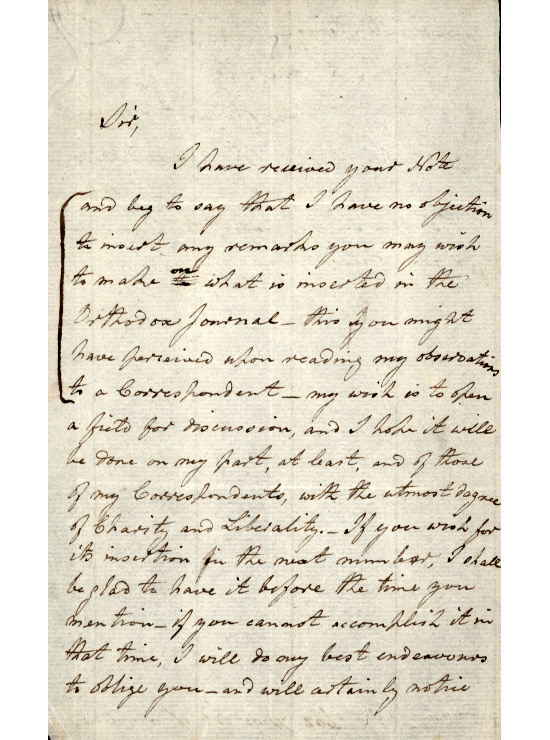 Sir,
I have received your Note
and beg to say that I have no objection
to insert any remarks you may wish
to make on what is inserted in the
Orthodox Journal – this you might
have perceived upon reading my observations
to a Correspondent – my wish is to open
a field for discussion, and I hope it will
be done on my part, at least, and of those
of my Correspondents, with the utmost degree
of Charity and Liberality. – If you wish for
its insertion in the next number, I shall
be glad to have it before the time you
mention – if you cannot accomplish it in
that time, I will do my best endeavours
to oblige you – and will certainly notice